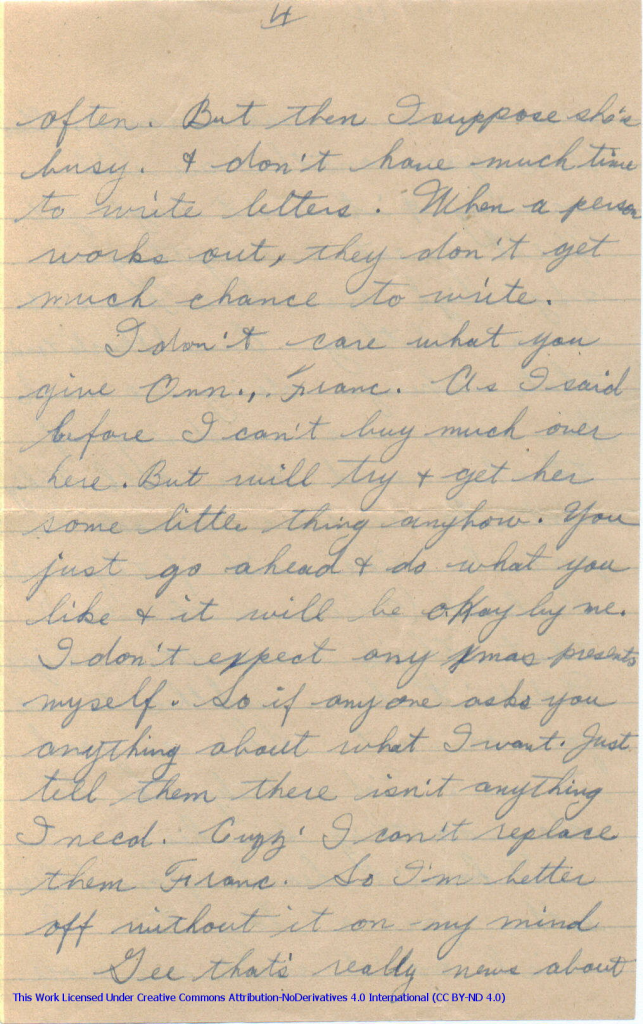 4
often. But then I suppose she's
busy. & don't have much time
to write letters. When a person
works out, they don't get
much chance to write.
I don't care what you
give Ann., Franc. As I said
before I can't buy much over
here. But will try & get her
some little thing anyhow. You
just go ahead & do what you
like & it will be okay by me.
I don't expect any Xmas presents
myself. So if any one asks you
anything about what I want. Just
tell them there isn't anything
I need. Cuzz' I can't replace
them Franc. So I'm better
off without it on my mind
Gee that's really news about
This Work Licensed Under Creative Commons Attribution-NoDerivatives 4.0 International (CC BY-ND 4.0)